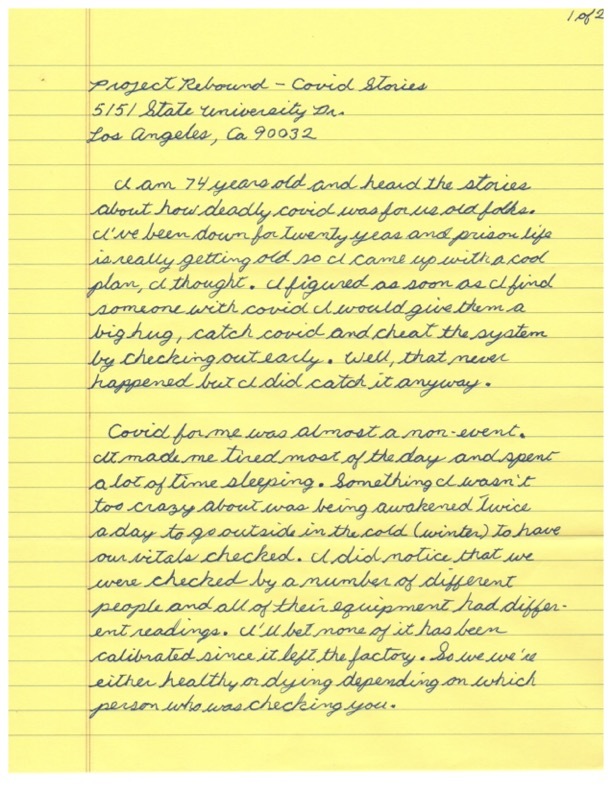 1 of 2
Project Rebound - Covid Stories
5151 State University Dr.
Los Angeles, Ca 90032
I am 74 years old and heard the stories
about how deadly covid was for us old folks.
I've been down for twenty yeas and prison life
is really getting old so I came up with a cool
plan, I thought. I figured as soon as I find
someone with covid I would give them a
big hug, catch covid and cheat the system
by checking out early. Well, that never
happened but I did catch it anyway.
Covid for me was almost a non-event.
It made me tired most of the day and spent
a lot of time sleeping. Something I wasn't
too crazy about was being awakened twice
a day to go outside in the cold (winter) to have
our vitals checked. I did notice that we
were checked by a number of different
people and all of their equipment had differ-
ent readings. I'll bet none of it has been
calibrated since it left the factory. So we we're
either healthy or dying depending on which
person who was checking you.